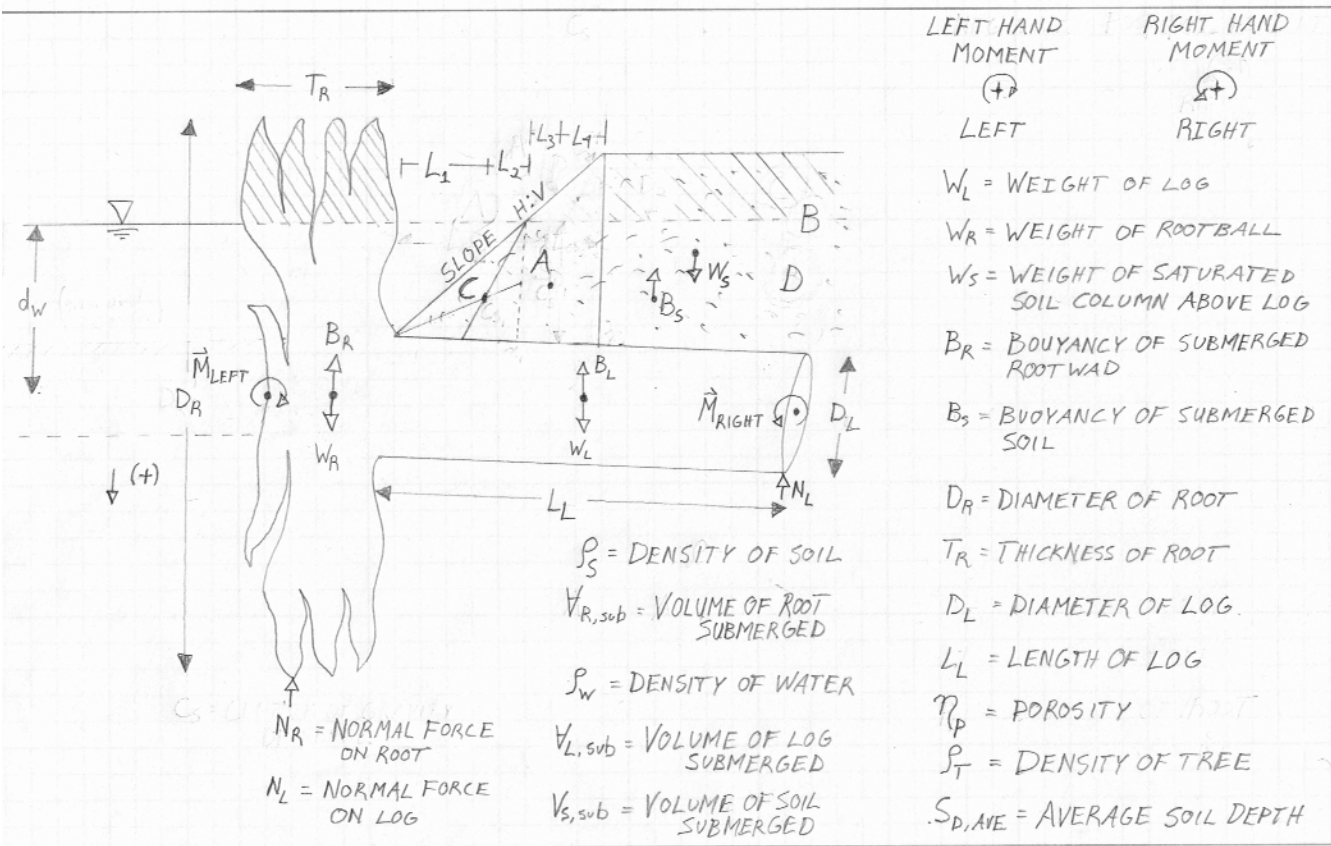 T_R
L_1
L_2
L_3
L_4
SLOPE H:V
A
B
C
D
C
d_W
W_S
B_S
B_R
M_LEFT
D_R
W_R
B_L
W_L
M_RIGHT
D_L
N_L
L_L
(+)
N_R = NORMAL FORCE
ON ROOT
N_L = NORMAL FORCE
ON LOG
ρ_S = DENSITY OF SOIL
V_R,sub = VOLUME OF ROOT
SUBMERGED
ρ_W = DENSITY OF WATER
V_L,sub = VOLUME OF LOG
SUBMERGED
V_S,sub = VOLUME OF SOIL
SUBMERGED
LEFT HAND
MOMENT
(+)
LEFT
RIGHT HAND
MOMENT
(+)
RIGHT
W_L = WEIGHT OF LOG
W_R = WEIGHT OF ROOTBALL
W_S = WEIGHT OF SATURATED
SOIL COLUMN ABOVE LOG
B_R = BOUYANCY OF SUBMERGED
ROOTWAD
B_S = BUOYANCY OF SUBMERGED
SOIL
D_R = DIAMETER OF ROOT
T_R = THICKNESS OF ROOT
D_L = DIAMETER OF LOG.
L_L = LENGTH OF LOG
η_p = POROSITY
ρ_T = DENSITY OF TREE
S_D,AVE = AVERAGE SOIL DEPTH